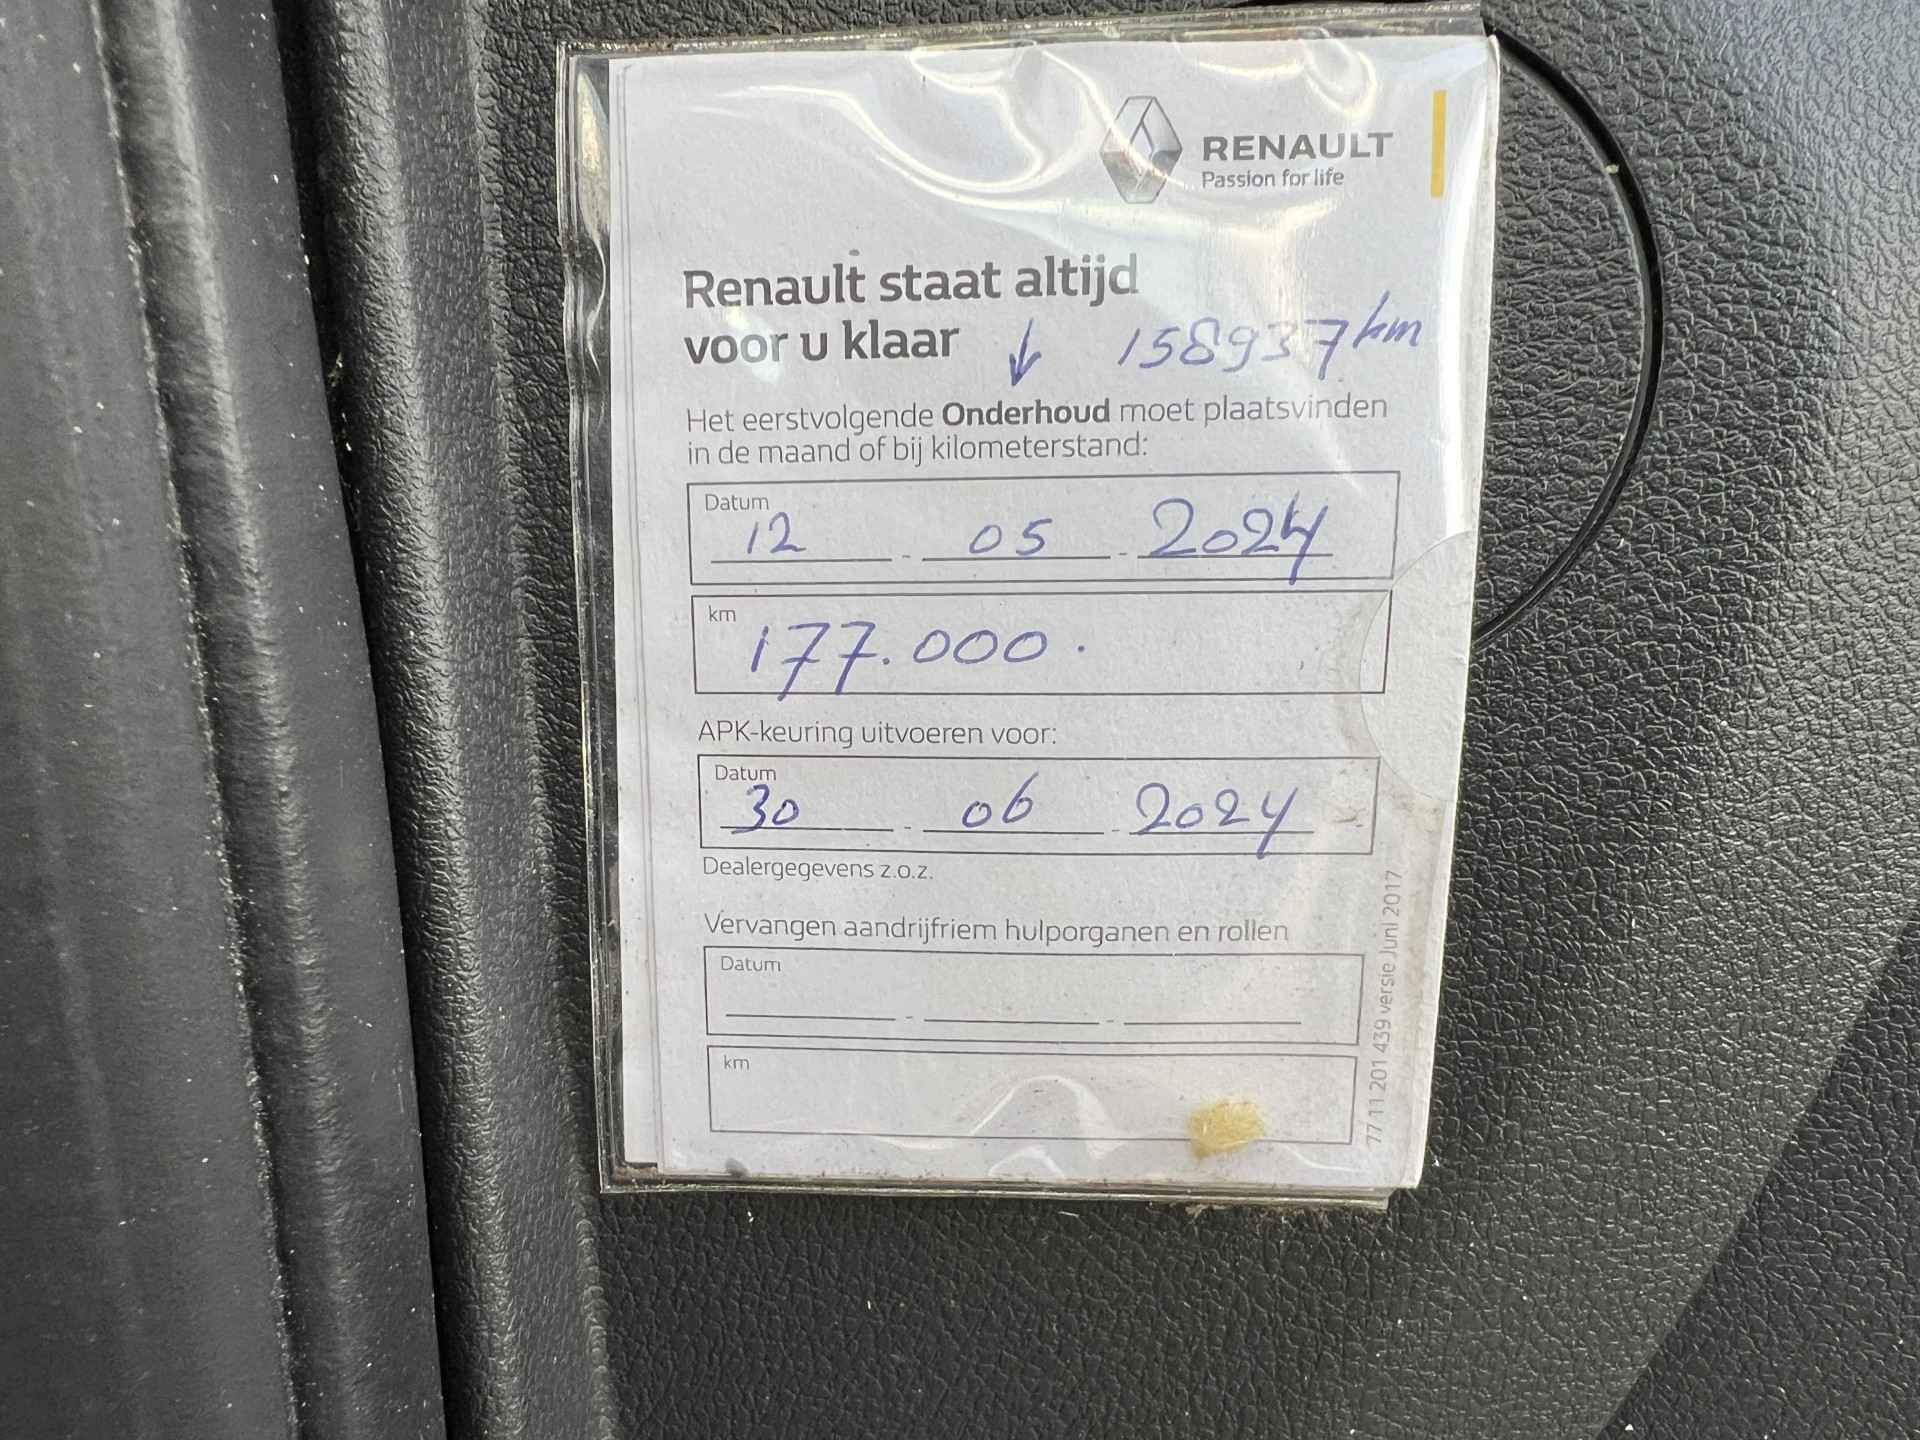 RENAULT
Passion for life
Renault staat altijd
voor u klaar
158937 km
Het eerstvolgende Onderhoud moet plaatsvinden
in de maand of bij kilometerstand:
Datum
12 - 05 - 2024
km
177.000.
APK-keuring uitvoeren voor:
Datum
30 - 06 - 2024
Dealergegevens z.o.z.
Vervangen aandrijfriem hulporganen en rollen
Datum
- -
km
77 11 201 439 versie Juni 2017